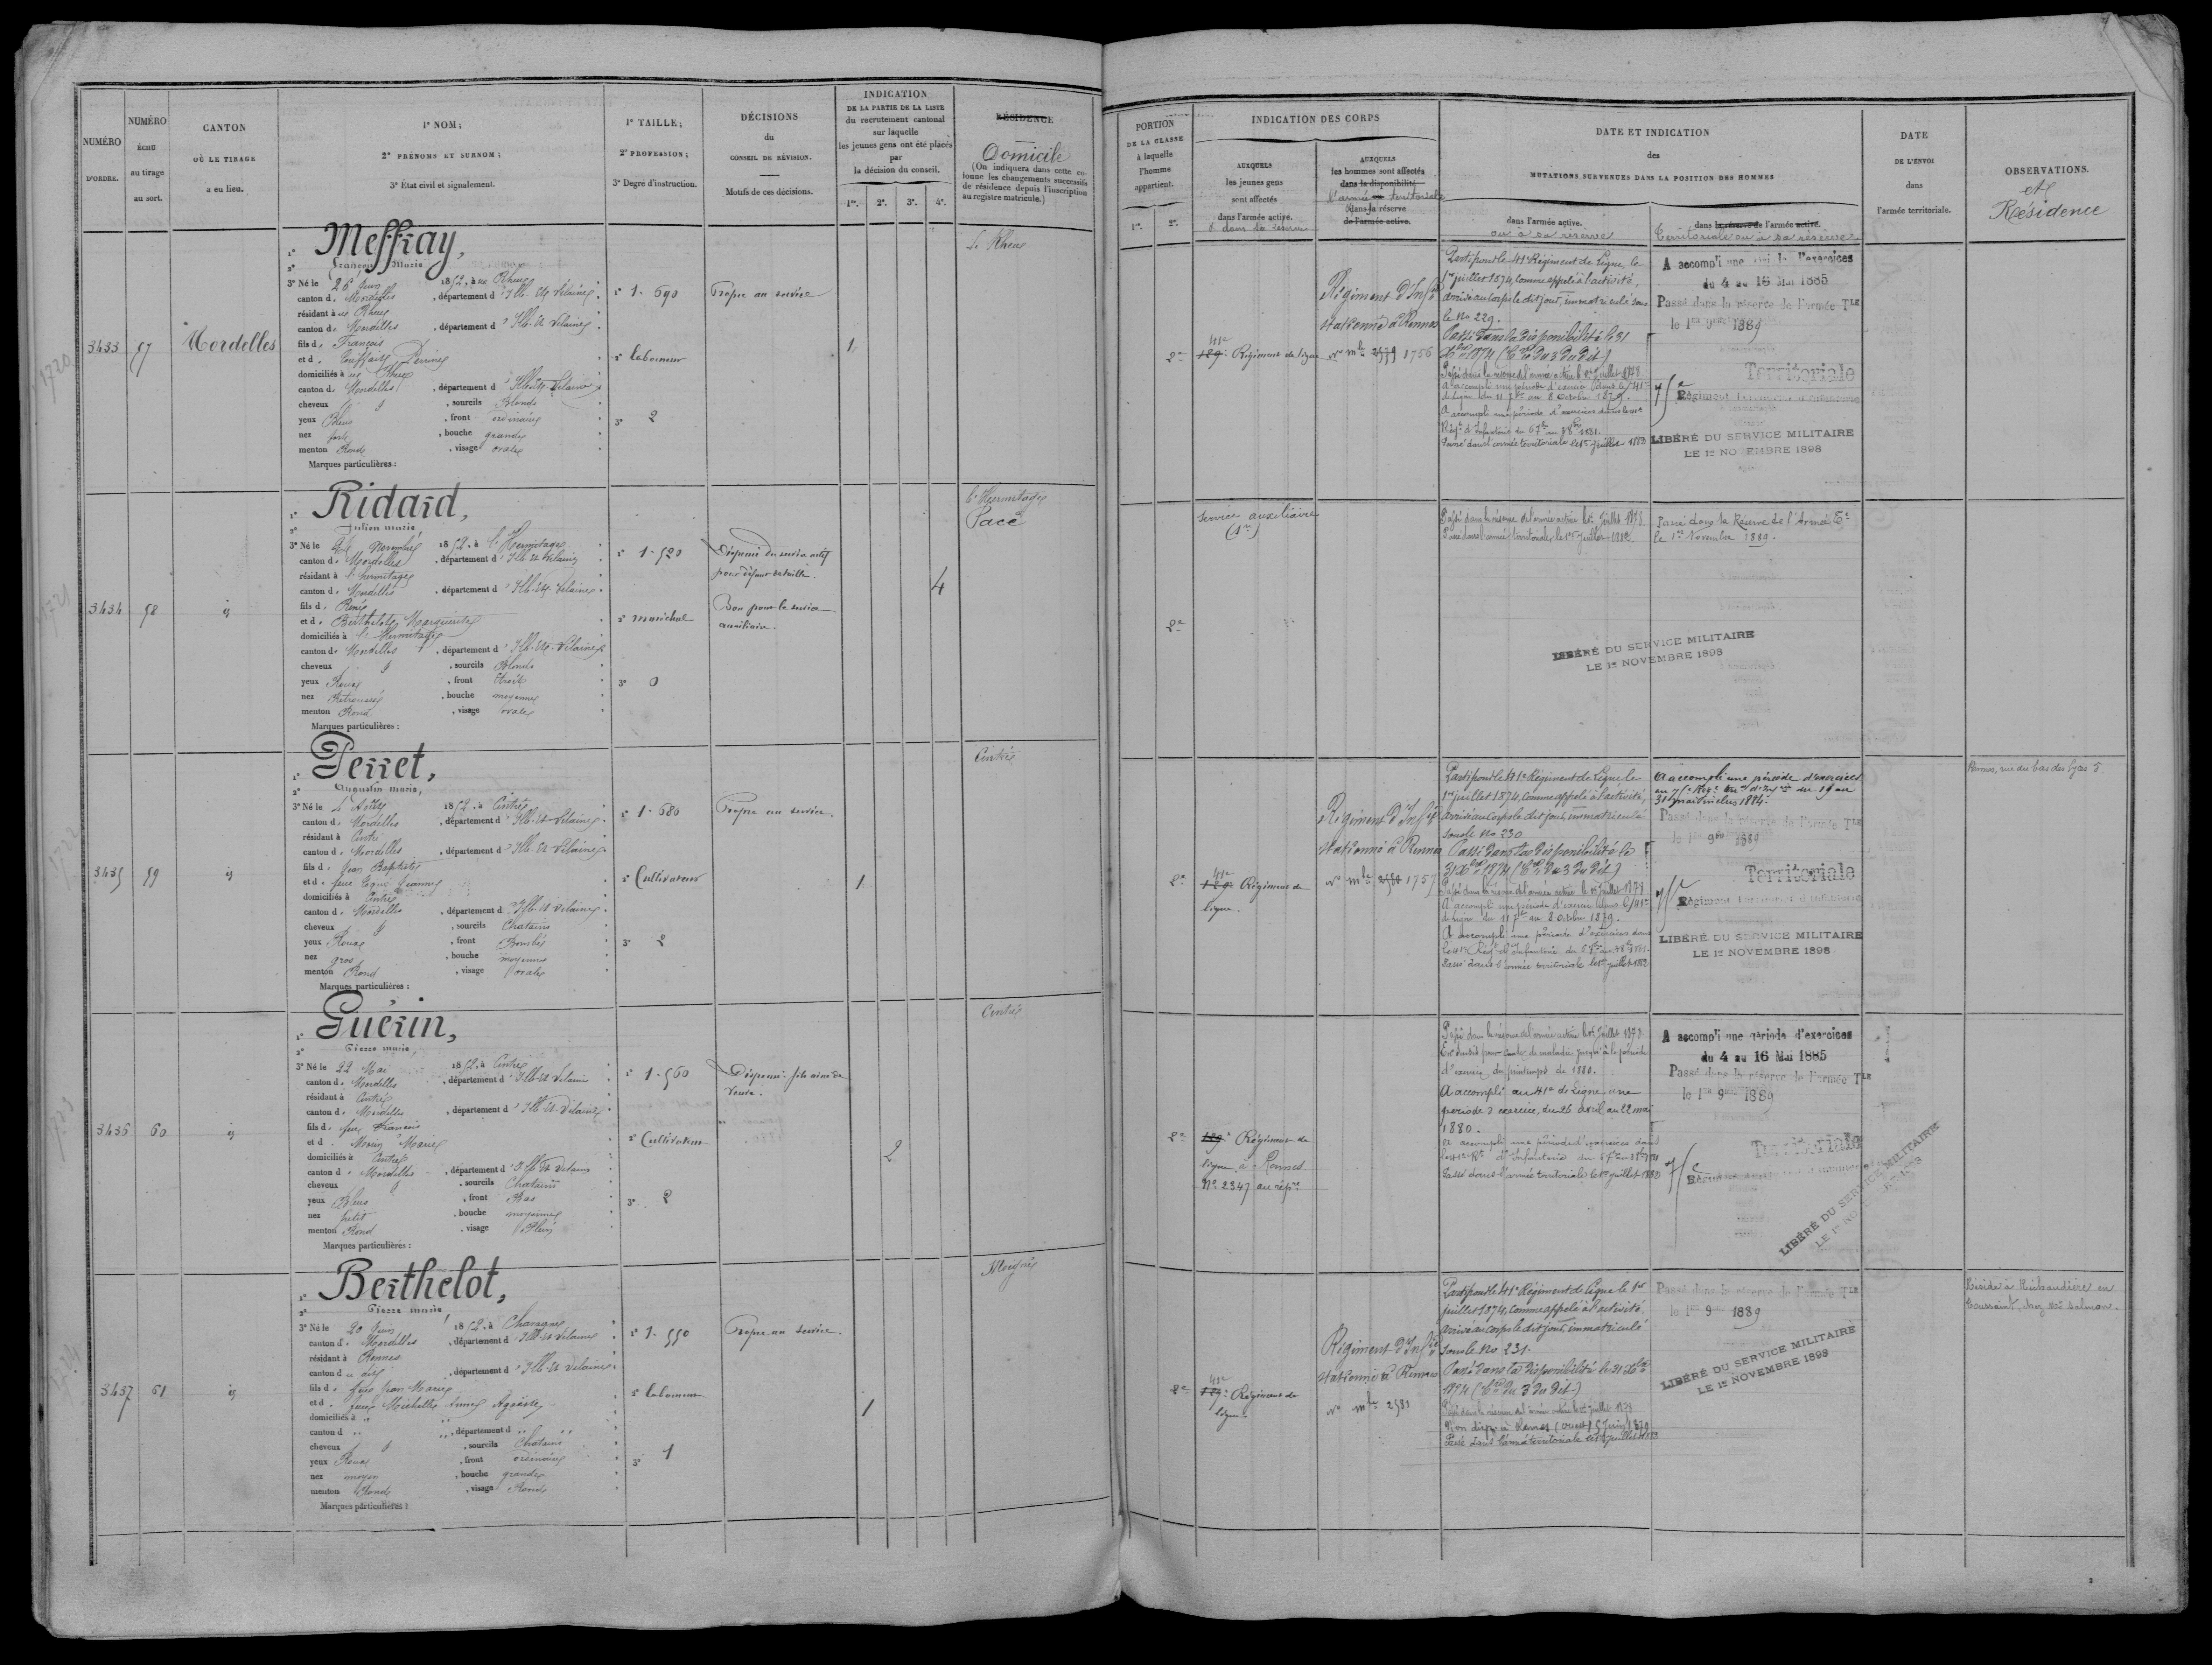 NUMÉRO
D'ORDRE.
NUMÉRO
ÉCHU
au tirage
au sort.
CANTON
OÙ LE TIRAGE
a eu lieu.
1° NOM;
2° PRÉNOMS ET SURNOM;
3° État civil et signalement.
1° TAILLE;
2° PROFESSION;
3° Degré d'instruction.
DÉCISIONS
du
CONSEIL DE RÉVISION.
Motifs de ces décisions.
INDICATION
DE LA PARTIE DE LA LISTE
du recrutement cantonal
sur laquelle
les jeunes gens ont été placés
par
la décision du conseil.
1re. 2e. 3e. 4e.
RÉSIDENCE
Domicile
(On indiquera dans cette colonne
les changements successifs
de résidence depuis l'inscription
au registre matricule.)
3433
57
Mordelles
1° Meffray,
2° François Marie
3° Né le 26 Juin 1852, à Rheu
canton de Mordelles, département d'Ille-et-Vilaine
résidant à Rheu
canton de Mordelles, département d'Ille-et-Vilaine
fils de François
et de Perrine
domiciliés à Rheu
canton de Mordelles, département d'Ille-et-Vilaine
cheveux, sourcils Blonds
yeux Bleus, front ordinaire
nez fort, bouche grande
menton Rond, visage ovale
Marques particulières :
1° 1.690
2° laboureur
3° 2
Propre au service
1
Le Rheu
3434
58
id
1° Ridard,
2° Julien marie
3° Né le Novembre 1852, à l'Hermitage
canton de Mordelles, département d'Ille-et-Vilaine
résidant à l'hermitage
canton de Mordelles, département d'Ille-et-Vilaine
fils de René
et de Berthelot Marguerite
domiciliés à l'Hermitage
canton de Mordelles, département d'Ille-et-Vilaine
cheveux, sourcils Blonds
yeux Roux, front étroit
nez Retroussé, bouche moyenne
menton Rond, visage ovale
Marques particulières :
1° 1.520
2° maréchal
3° 0
Dispensé du service actif
pour défaut de taille.
Bon pour le service
auxiliaire.
4
L'Hermitage
Pacé
3435
59
id
1° Perret,
2° Augustin marie,
3° Né le 1852, à Cintré
canton de Mordelles, département d'Ille-et-Vilaine
résidant à Cintré
canton de Mordelles, département d'Ille-et-Vilaine
fils de Jean Baptiste
et de feue Jeanne
domiciliés à Cintré
canton de Mordelles, département d'Ille-et-Vilaine
cheveux, sourcils Chatains
yeux Roux, front Bombé
nez gros, bouche moyenne
menton Rond, visage ovale
Marques particulières :
1° 1.680
2° Cultivateur
3° 2
Propre au service.
1
Cintré
3436
60
id
1° Guérin,
2° Pierre marie,
3° Né le 22 Mai 1852, à Cintré
canton de Mordelles, département d'Ille-et-Vilaine
résidant à Cintré
canton de Mordelles, département d'Ille-et-Vilaine
fils de feu François
et de Morin Marie
domiciliés à Cintré
canton de Mordelles, département d'Ille-et-Vilaine
cheveux, sourcils Chatains
yeux Bleus, front Bas
nez petit, bouche moyenne
menton Rond, visage Plein
Marques particulières :
1° 1.560
2° Cultivateur
3° 2
Dispensé fils aîné de
veuve.
2
Cintré
3437
61
id
1° Berthelot,
2° Pierre marie
3° Né le 20 Juin 1852, à Chavagne
canton de Mordelles, département d'Ille-et-Vilaine
résidant à Rennes
canton de dit, département d'Ille-et-Vilaine
fils de feu Jean Marie
et de feue Michelle Anne
domiciliés à ,,
canton d ,, département d ,,
cheveux, sourcils Chatains
yeux Roux, front ordinaire
nez moyen, bouche grande
menton Rond, visage Rond
Marques particulières :
1° 1.550
2° laboureur
3° 1
Propre au service.
1
Moigné
PORTION
DE LA CLASSE
à laquelle
l'homme
appartient.
1re. 2e.
INDICATION DES CORPS
AUXQUELS
les jeunes gens
sont affectés
dans l'armée active.
& dans la réserve
AUXQUELS
les hommes sont affectés
dans la disponibilité
l'armée ou territoriale
dans la réserve
de l'armée active.
DATE ET INDICATION
des
MUTATIONS SURVENUES DANS LA POSITION DES HOMMES
dans l'armée active.
ou à sa réserve
dans la réserve de l'armée active.
territoriale ou à sa réserve
DATE
DE L'ENVOI
dans
l'armée territoriale.
OBSERVATIONS.
et
Résidence
2e
41e
129e Régiment de ligne
Régiment d'Inf.ie
stationné à Rennes
No mle 2579 1756
Parti pour le 41e Régiment de Ligne, le
1er juillet 1874, comme appelé à l'activité,
arrivé au corps le dit jour, immatriculé sous
le No 229.
Passé dans la disponibilité le 31
Xbre 1874 (Cre du 3 du dit)
Passé dans la réserve de l'armée active le 1er juillet 1878.
A accompli une période d'exercice dans le 41e
de Ligne du 11 7bre au 8 Octobre 1879.
A accompli une période d'exercices dans le 41e
Régt d'Infanterie du
Passé dans l'armée territoriale le 1er juillet 1883
A accompli une période d'exercices
du 4 au 16 Mai 1885
Passé dans la réserve de l'armée Tle
le 1er 9bre 1889
75e Territoriale
Régiment territorial d'infanterie
LIBÉRÉ DU SERVICE MILITAIRE
LE 1er NOVEMBRE 1898
2e
Service auxiliaire
Passé dans la réserve de l'armée active le 1er juillet 1878.
Passé dans l'armée territoriale le 1er juillet 1882.
Passé dans la Réserve de l'Armée Tle
le 1er Novembre 1889.
LIBÉRÉ DU SERVICE MILITAIRE
LE 1er NOVEMBRE 1898
2e
41e
129e Régiment de
ligne.
Régiment d'Inf.ie
stationné à Rennes
No mle 2580 1757
Parti pour le 41e Régiment de Ligne le
1er juillet 1874, comme appelé à l'activité,
arrivé au corps le dit jour, immatriculé
sous le No 230
Passé dans la disponibilité le
31 Xbre 1874 (Cre du 3 du dit)
Passé dans la réserve de l'armée active le 1er juillet 1878.
A accompli une période d'exercice dans le 41e
de Ligne du 11 7bre au 8 Octobre 1879.
A accompli une période d'exercices dans
le 41e Régt d'Infanterie du
Passé dans l'armée territoriale le 1er juillet 1882
A accompli une période d'exercices
au 75e Régt du 19 au
31 mai inclus 1884.
Passé dans la réserve de l'armée Tle
le 1er 9bre 1889
75e Territoriale
Régiment territorial d'infanterie
LIBÉRÉ DU SERVICE MILITAIRE
LE 1er NOVEMBRE 1898
Rennes, rue du bas des lices 5
2e
129e Régiment de
ligne à Rennes
No 2347 au répre
Passé dans la réserve de l'armée active le 1er juillet 1878.
d'exercice du printemps de 1880.
A accompli au 41e de Ligne, une
période d'exercice, du 26 avril au 22 mai
1880.
A accompli une période d'exercices dans
le 41e Rt d'Infanterie du
Passé dans l'armée territoriale le 1er juillet 1883
A accompli une période d'exercices
du 4 au 16 Mai 1885
Passé dans la réserve de l'armée Tle
le 1er 9bre 1889
75e Territoriale
LIBÉRÉ DU SERVICE MILITAIRE
2e
41e
129e Régiment de
ligne.
Régiment d'Inf.ie
stationné à Rennes
No mle 2581
Parti pour le 41e Régiment de Ligne le 1er
juillet 1874, comme appelé à l'activité,
arrivé au corps le dit jour, immatriculé
sous le No 231.
Passé dans la disponibilité le 31 Xbre
1874 (Cre du 3 du dit)
Passé dans la réserve de l'armée active le 1er juillet 1878
Passé dans l'armée territoriale le 1er juillet
Passé dans la réserve de l'armée Tle
le 1er 9bre 1889
LIBÉRÉ DU SERVICE MILITAIRE
LE 1er NOVEMBRE 1898
Réside à en
Toussaint, chez